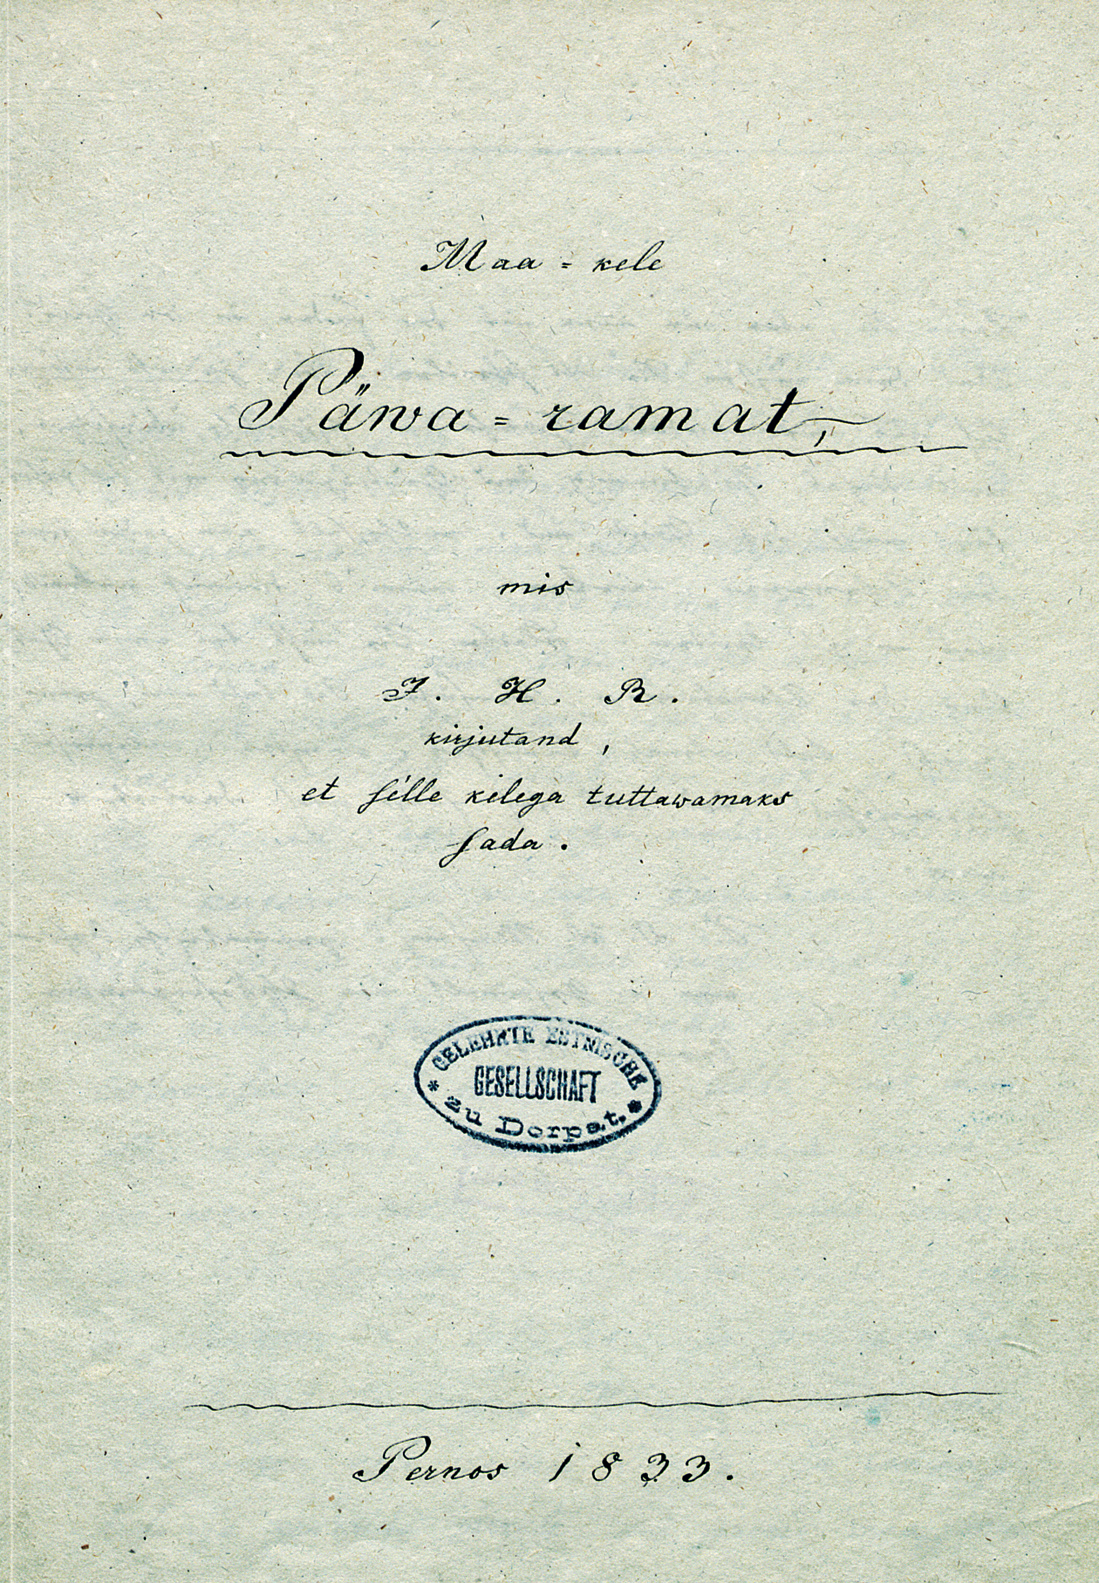 Maa = kele
Päwa = ramat,
mis
J. H. R.
kirjutand,
et ſélle kelega tuttawamaks
ſada.
GELEHRTE ESTNISCHE
GESELLSCHAFT
* zu Dorpat. *
Pernos 1833.